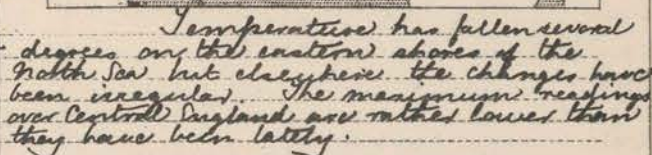 Temperature has fallen several
degrees on the eastern shores of the
North Sea but elsewhere the changes have
been irregular. The maximum readings
over Central England are rather lower than
they have been lately.